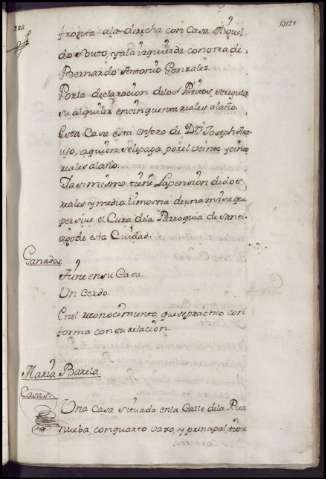 frontera: ala derecha con Casa Miguel
do Souto, y ala izquierda con otra de
Bernardo Antonio Gonzalez.
Por la declaracion delos Peritos, se regula
su alquiler en cinquenta reales al año.
Esta Casa esta en foro de Dn Joseph
a quien se le paga, por el veinte y cinco
reales al año.
Y asimismo tiene la pension de dos
reales y medio limosna de una misa que
persive el Cura dela Parroquia de Santi-
ago de esta Ciudad.
Ganados
Tiene en su Casa.
Un Cerdo.
En el reconocimiento, que se practicó con
forma con su relacion.
Maria Barela
Casas
Una Casa situada en la Calle dela Rua
nueba, con quarto vaxo, y principal, tiene